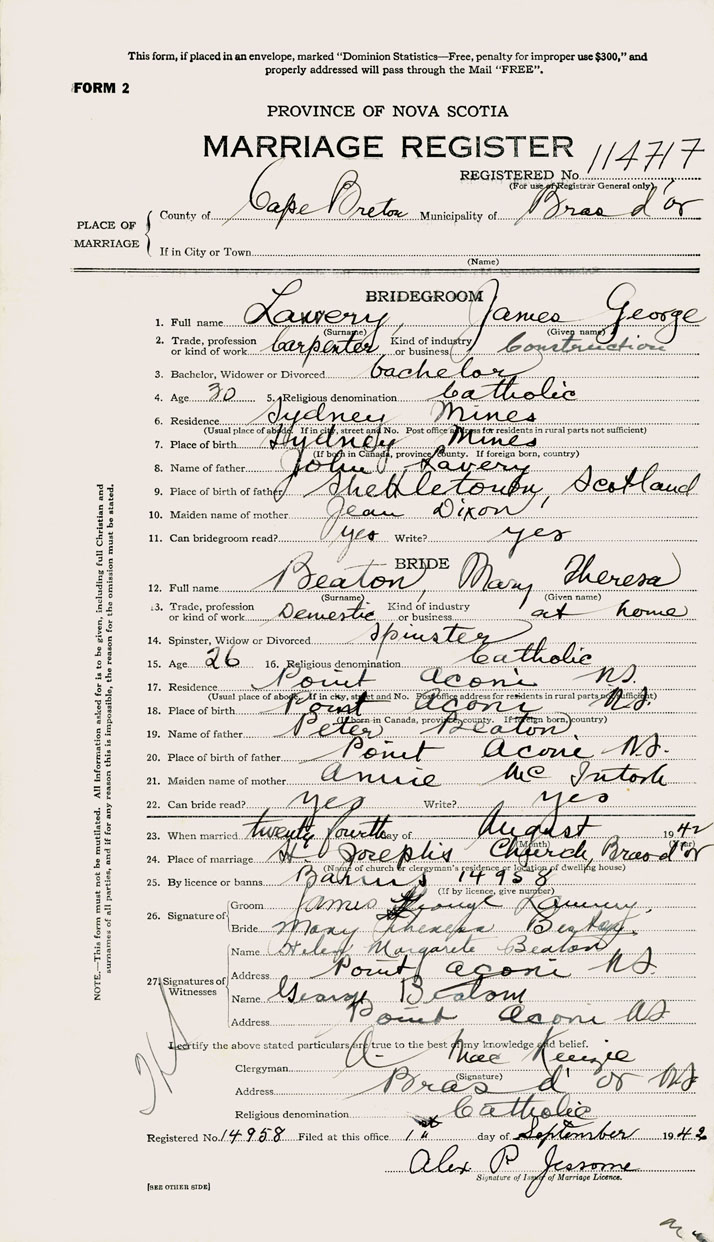 This form, if placed in an envelope, marked "Dominion Statistics—Free, penalty for improper use $300," and
properly addressed will pass through the Mail "FREE".
FORM 2
PROVINCE OF NOVA SCOTIA
MARRIAGE REGISTER
REGISTERED No. 114717
(For use of Registrar General only)
PLACE OF MARRIAGE
County of Cape Breton Municipality of Bras d'or
If in City or Town
(Name)
BRIDEGROOM
1. Full name Lawery, James George
(Surname) (Given name)
2. Trade, profession or kind of work Carpenter Kind of industry or business Construction
3. Bachelor, Widower or Divorced bachelor
4. Age 30 5. Religious denomination Catholic
6. Residence Sydney Mines
(Usual place of abode. If in city, street and No. Post office address for residents in rural parts not sufficient)
7. Place of birth Sydney Mines
(If born in Canada, province, county. If foreign born, country)
8. Name of father John Lavery
9. Place of birth of father Shettletown, Scotland
10. Maiden name of mother Jean Dixon
11. Can bridegroom read? yes Write? yes
BRIDE
12. Full name Beaton, Mary Theresa
(Surname) (Given name)
13. Trade, profession or kind of work Domestic Kind of industry or business at home
14. Spinster, Widow or Divorced Spinster
15. Age 26 16. Religious denomination Catholic
17. Residence Point Aconi N.S.
(Usual place of abode. If in city, street and No. Post office address for residents in rural parts not sufficient)
18. Place of birth Point Aconi N.S.
(If born in Canada, province, county. If foreign born, country)
19. Name of father Peter Beaton
20. Place of birth of father Point Aconi N.S.
21. Maiden name of mother Annie McIntosh
22. Can bride read? yes Write? yes
23. When married twenty fourth day of August 1942
(Month) (Year)
24. Place of marriage St. Joseph's Church, Bras d'or
(Name of church or clergyman's residence or location of dwelling house)
25. By licence or banns Banns 14958
(If by licence, give number)
26. Signature of
Groom James George Lawery
Bride Mary Theresa Beaton
27. Signatures of Witnesses
Name Helen Margarete Beaton
Address Point Aconi N.S.
Name George Beaton
Address Point Aconi N.S.
I certify the above stated particulars are true to the best of my knowledge and belief.
Clergyman A. MacKenzie
(Signature)
Address Bras d'or N.S.
Religious denomination Catholic
Registered No. 14958 Filed at this office 1st day of September 1942
Alex P. Jessome
Signature of Issuer of Marriage Licence.
[SEE OTHER SIDE]
NOTE.—This form must not be mutilated. All information asked for is to be given, including full Christian and
surnames of all parties, and if for any reason this is impossible, the reason for the omission must be stated.